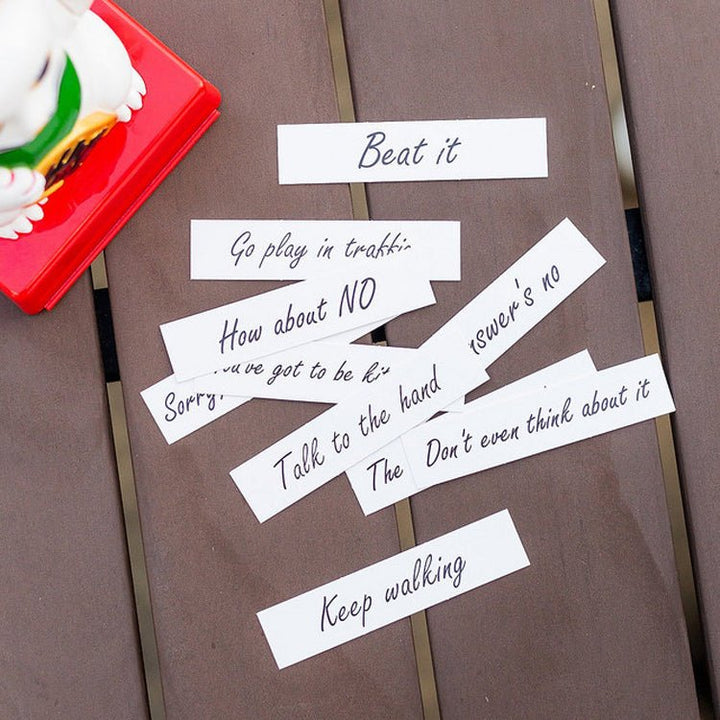 Beat it
Go play in traffic
How about NO
got to be
Sorry,
answer's no
Talk to the hand
The
Don't even think about it
Keep walking